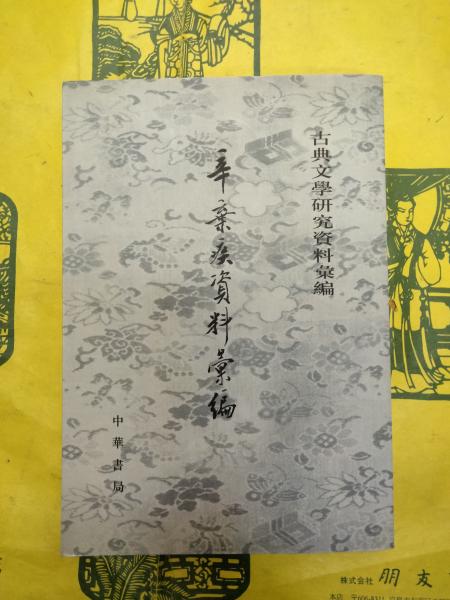 古典文學研究資料彙編
辛棄疾資料彙編
中華書局
株式会社 朋友
本店 〒606-8311